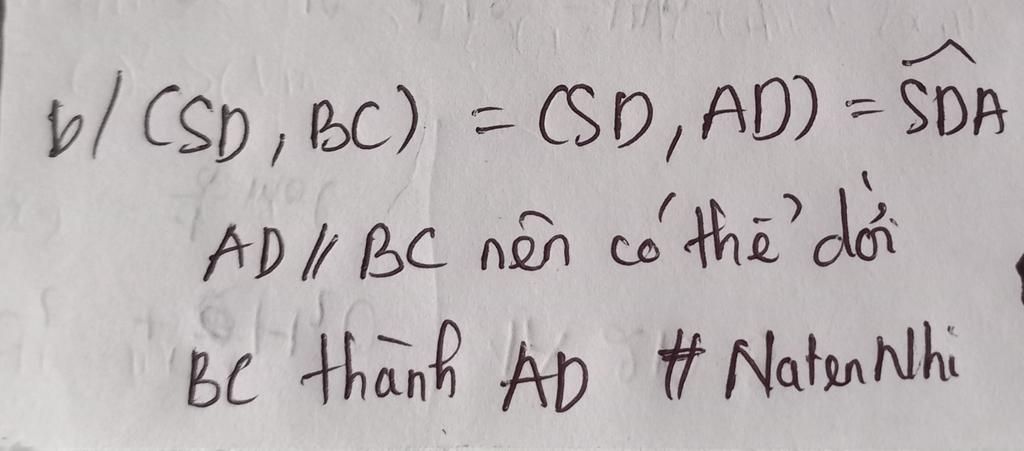 b/ (SD, BC) = (SD, AD) = \widehat{SDA}
AD // BC nên có thể dời
BC thành AD # NatenNhi